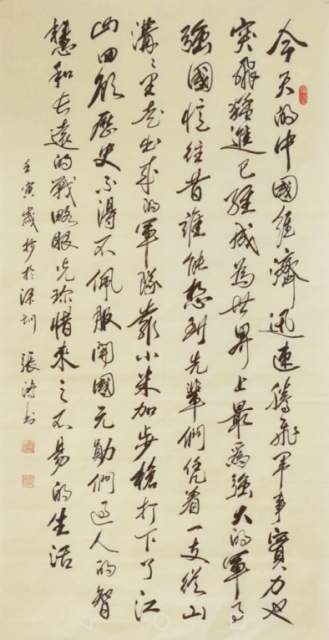 今天的中國經濟迅速騰飛軍事實力也
突飛猛進已經成為世界上最為強大的軍事
強國憶往昔誰能想到先輩們凭着一支從山
溝〻里走出來的軍隊靠小米加步槍打下了江
山回顧歷史不得不佩服開國元勛們過人的智
慧和長遠的戰略眼光珍惜來之不易的生活
壬寅歲杪於深圳 張 书